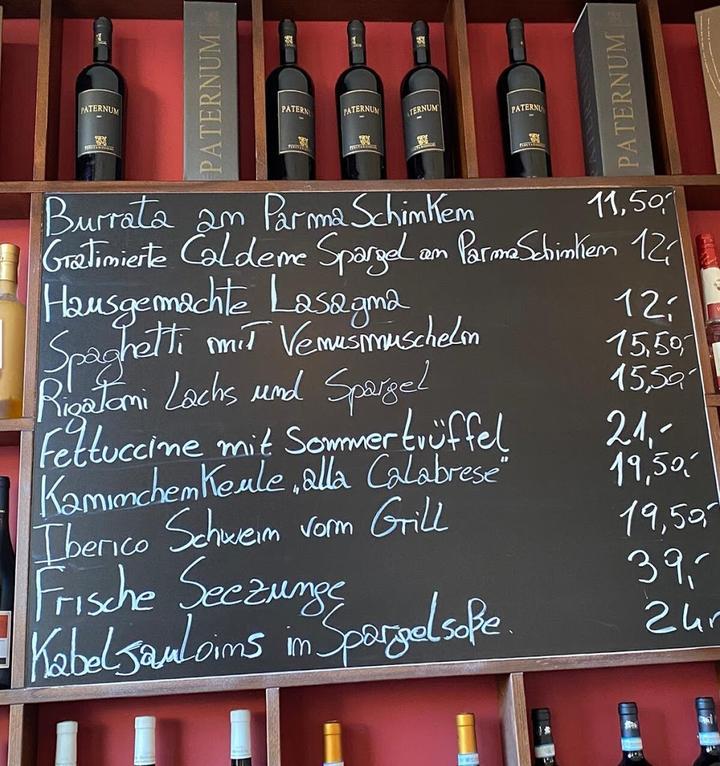 PATERNUM
PATERNUM
PATERNUM
PATERNUM
PATERNUM
PATERNUM
PATERNUM
Burrata an ParmaSchinken 11,50,-
Gratinierte Caldeme Spargel an ParmaSchinken 12,-
Hausgemachte Lasagna 12,-
Spaghetti mit Venusmuscheln 15,50,-
Rigatoni Lachs und Spargel 15,50,-
Fettuccine mit Sommertrüffel 21,-
KaninchenKeule „alla Calabrese" 19,50,-
Iberico Schwein vom Grill 19,50,-
Frische Seezunge 39,-
Kabeljauloins in Spargelsoße. 24,-